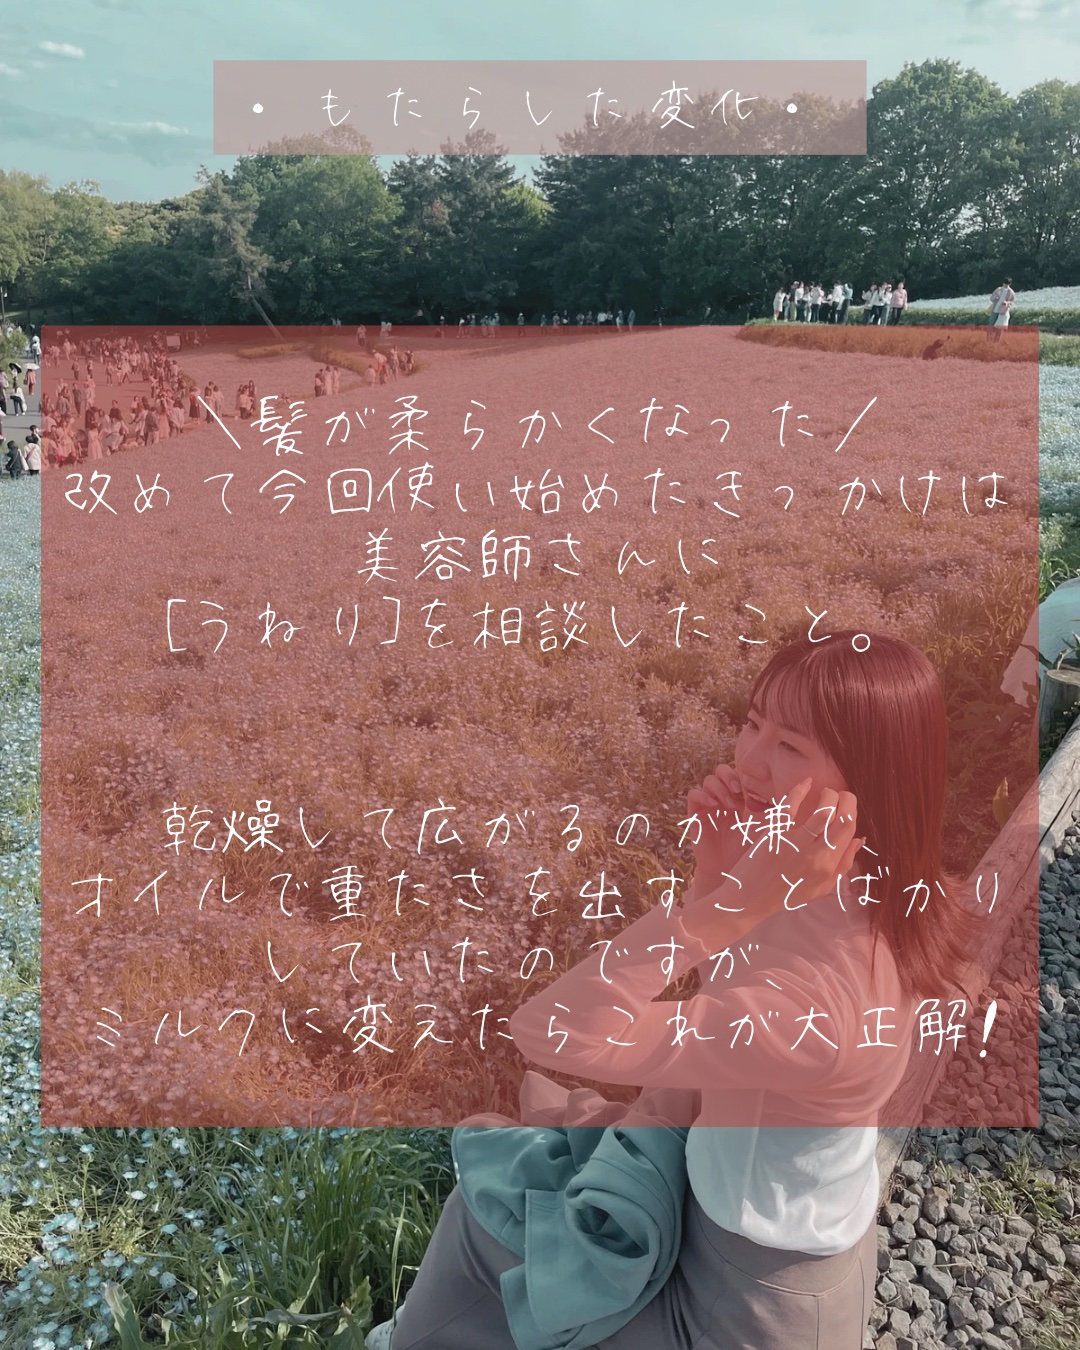 ・もたらした変化・
＼髪が柔らかくなった／
改めて今回使い始めたきっかけは
美容師さんに
[うねり]を相談したこと。
乾燥して広がるのが嫌で、
オイルで重たさを出すことばかり
していたのですが、
ミルクに変えたらこれが大正解！